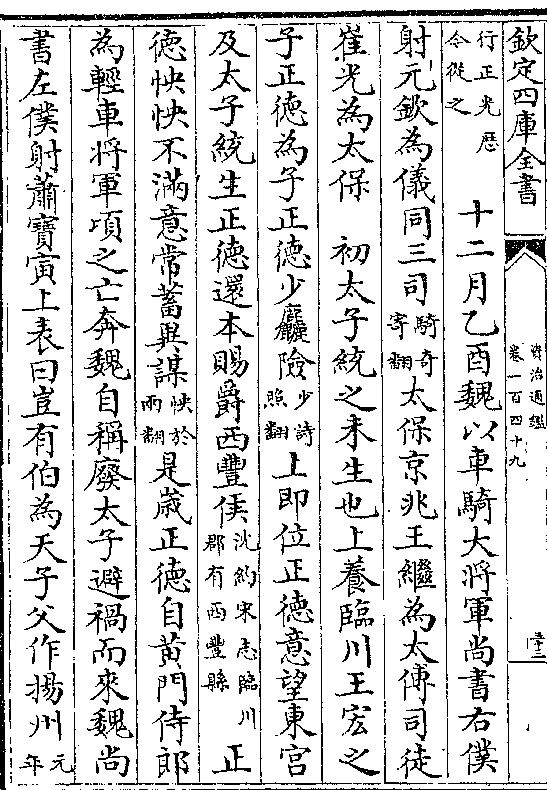 欽定四庫全書
資治通鑑
卷一百四十九
行正光厯
令從之
十二月乙酉魏以車騎大將軍尚書右僕
射元欽為儀同三司騎奇
寄翻太保京兆王繼為太傅司徒
崔光為太保 初太子統之未生也上養臨川王宏之
子正德為子正德少麤險少詩
照翻上即位正德意望東宮
及太子統生正德還本賜爵西豐侯沈約宋志臨川
郡有西豐縣正
德怏怏不滿意常蓄異謀怏於
兩翻是歲正德自黄門侍郎
為輕車將軍頃之亡奔魏自稱廢太子避禍而來魏尚
書左僕射蕭寶寅上表曰豈有伯為天子父作揚州元
年